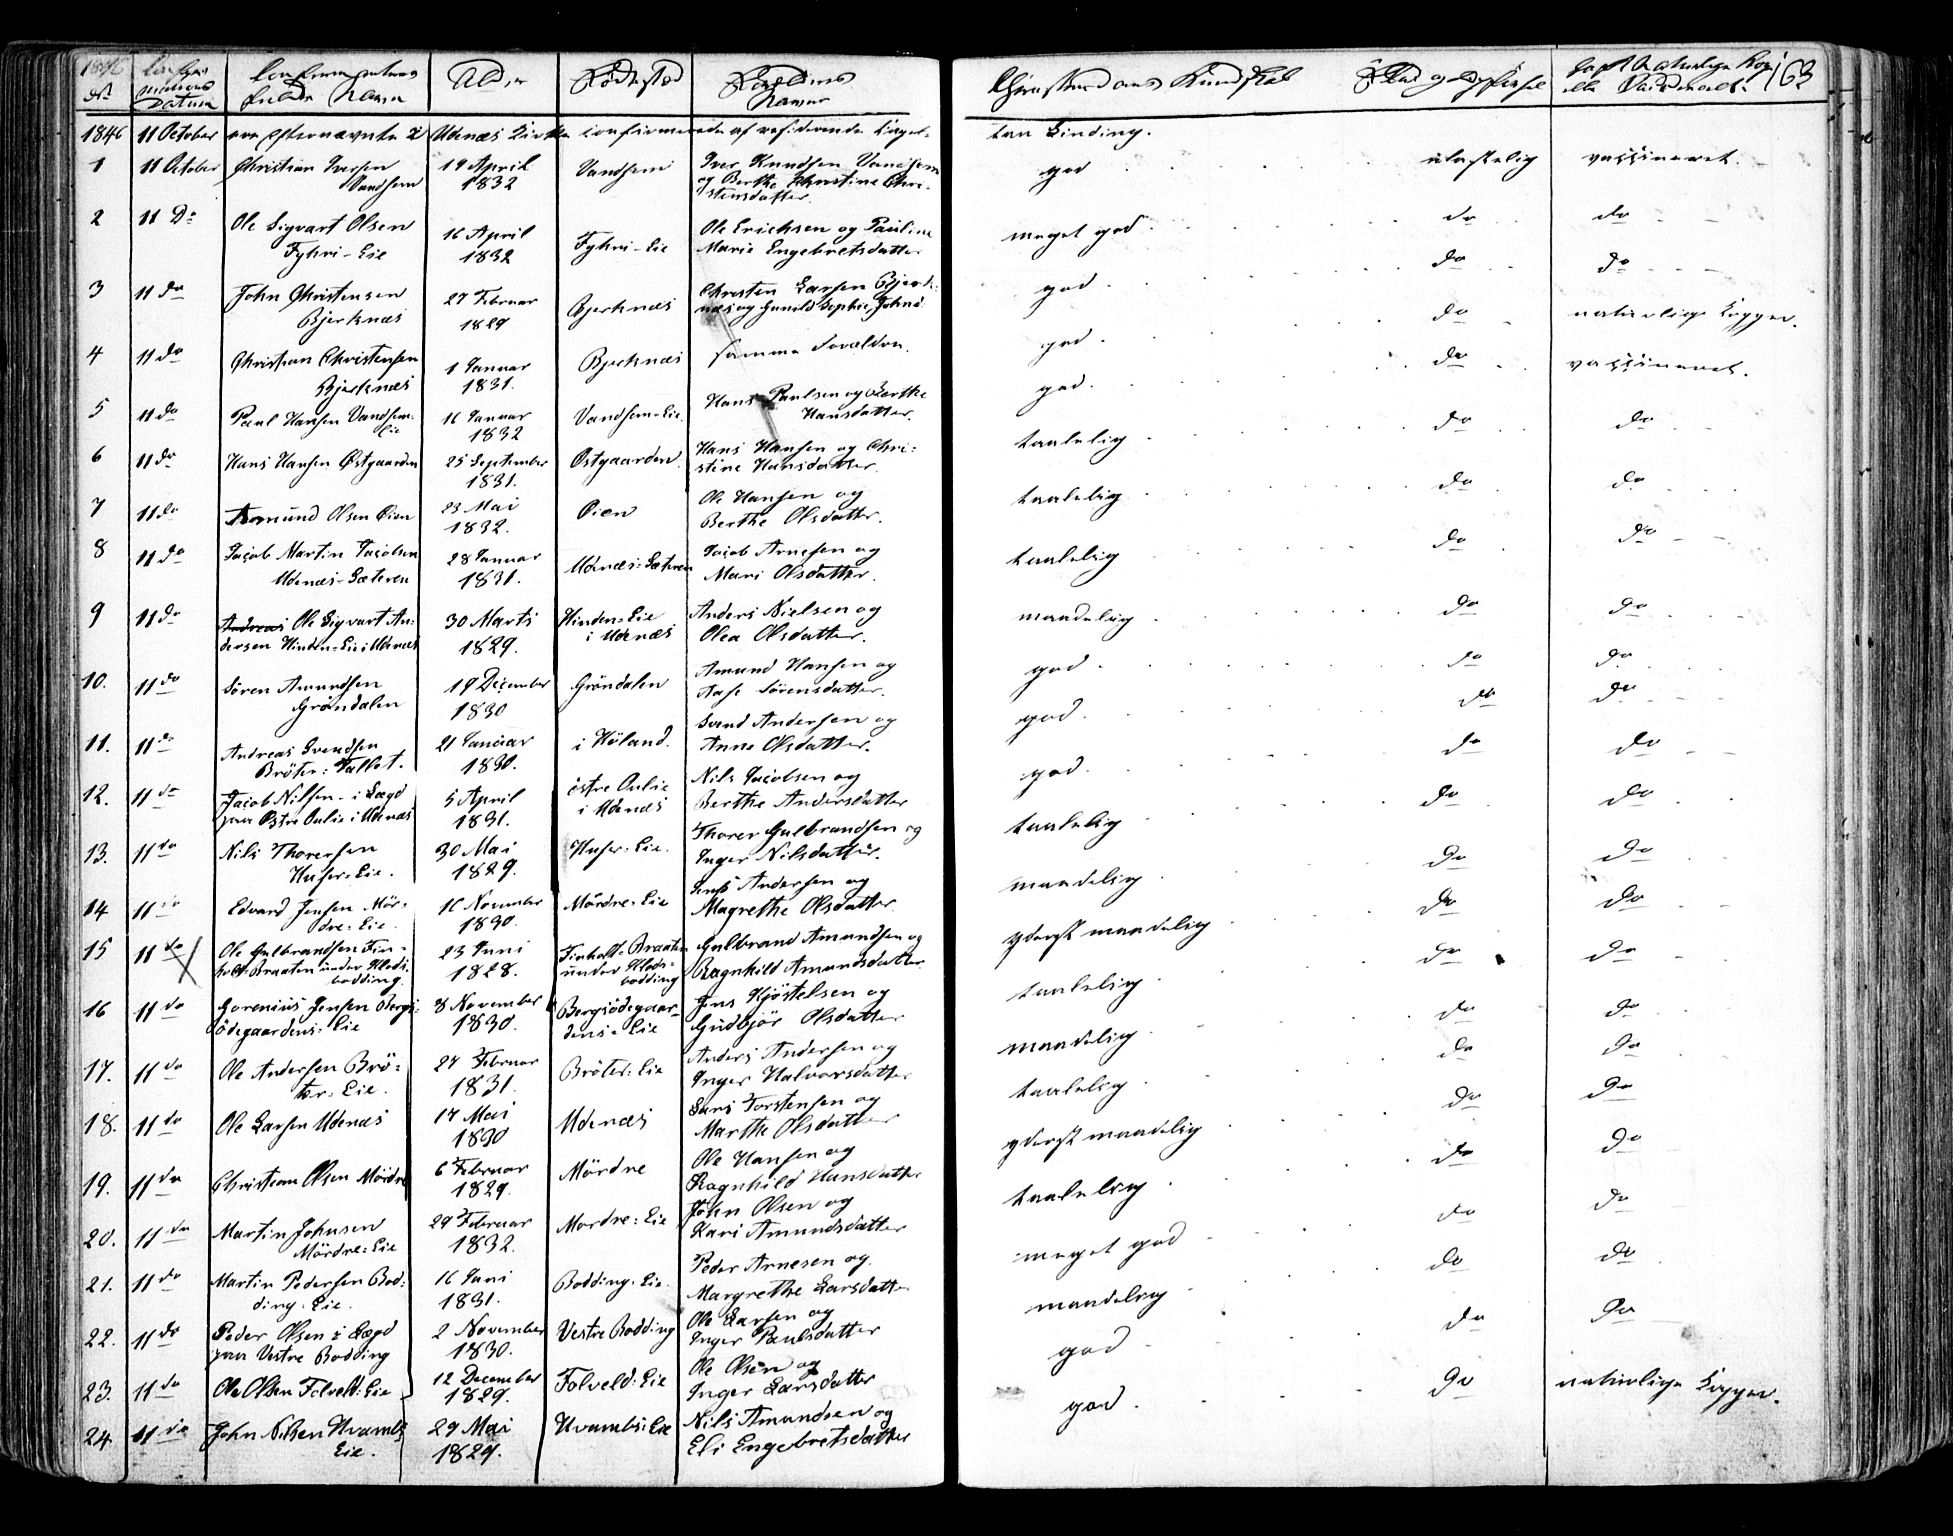 1846
No
Datum
Alder
Födested
163
1846 11 October ere efternævnte i Udnæs Kirke confirmerede af residerende Capel-
lan Linding.
1 11 October Christian Iversen
Vandsem
19 April
1832
Vandsem
Iver Knudsen Vandsem
og Berthe Christine Chri-
stensdatter.
god
ulastelig
vaccineret.
2 11 Do
Ole Sigvart Olsen
Fyhri-Eie
16 April
1832
Fyhri-Eie
Ole Erichsen og Pauline
Marie Engebretsdatter
meget god
do
do
3 11 do
John Christensen
Bjerknæs
27 Februar
1829
Bjerknæs
Christen Larsen Bjerk-
næs og Gunild Sophie Johns
god
do
do
4 11 do
Christian Christensen
Bjerknæs
1 Januar
1831.
Bjerknæs
samme Forældre.
god
do
naturlige Kopper.
5 11 do
Paul Hansen Vandsem-
Eie
16 Januar
1832
Vandsem-Eie
Hans Paulsen og Berthe
Hansdatter.
god
do
vaccineret.
6 11 do
Hans Hansen Østgaarden
25 September
1831.
Østgaarden.
Hans Hansen og Chri-
stine Hansdatter.
taalelig
do
do
7 11 do
Amund Olsen Øien
23 Mai
1832.
Øien
Ole Hansen og
Berthe Olsdatter.
taalelig
do
do
8 11 do
Jacob Martin Jacobsen
Udenæs-Sæteren
28 Januar
1831.
Udenæs-Sæteren
Jacob Arnesen og
Mari Olsdatter.
taalelig
do
do
9 11 do
Andreas Ole Sigvart An-
dersen Hinden-Eie i Udenæs
30 Marts
1829.
Hinden-Eie
i Udenæs
Anders Nielsen og
Olea Olsdatter.
maadelig
do
do
10. 11 do
Sören Amundsen
Gröndalen
19 December
1830
Gröndalen
Amund Hansen og
Aase Sörensdatter.
god
do
do
11. 11 do
Andreas Svendsen
Bröter: Talbot.
21 Januar
1830.
i Höland.
Svend Andersen og
Anne Olsdatter.
god
do
do
12. 11 do
Jacob Nilsen - i Lægd
paa Østre Aulie i Udenæs
5 April
1831.
östre Aulie
i Udenæs
Nils Jacobsen og
Berthe Andersdatter
god
do
do
13. 11 do
Nils Thoresen
Huser-Eie.
30 Mai
1829.
Huser-Eie.
Thorer Gulbrandsen og
Inger Nilsdatter.
taalelig
do
do
14 11 do
Edvard Jensen Mör-
dre-Eie.
16 November
1830.
Mördre-Eie
Jens Andersen og
Magrethe Olsdatter
maadelig
do
do
15 11 do
Ole Gulbrandsen Fin-
holt-Braaten under Klods-
bodding.
23 Juni
1828.
Finholt-Braaten
under Klods-
bodding
Gulbrand Amundsen og
Ragnhild Amundsdatter
yderst maadelig
do
do
16 11 do
Gorenius Jensen Bergs-
ödegaardens-Eie
8 November
1830.
Bergsödegaar-
dens-Eie
Jens Kjöstelsen og
Gudbjör Olsdatter
taalelig
do
do
17. 11 do
Ole Andersen Brö-
ter-Eie.
27 Februar
1831.
Bröter-Eie
Anders Andersen og
Inger Halvorsdatter
maadelig
do
do
18. 11 do
Ole Larsen Udenæs
17 Mai
1830
Udenæs
Lars Torstensen og
Marthe Olsdatter
taalelig
do
do
19. 11 do
Christian Olsen Mördre
6 Februar
1829.
Mördre
Ole Hansen og
Ragnhild Hansdatter
yderst maadelig
do
do
20. 11 do
Martin Johnsen
Mördre-Eie
29 Februar
1832.
Mordre-Eie
John Olsen og
Kari Amundsdatter
taalelig
do
do
21. 11 do
Martin Pedersen Bod-
ding-Eie.
16 Juni
1831.
Bodding-Eie.
Peder Arnesen og
Margrethe Larsdatter
meget god
do
do
22. 11 do
Peder Olsen i Lægd
paa Vestre Bodding
2 November
1830.
Vestre Bodding
Ole Larsen og
Inger Paulsdatter
maadelig
do
do
23. 11 do
Ole Olsen Folveld-Eie
12 December
1829.
Folveld-Eie
Ole Olsen og
Inger Larsdatter
god
do
do
24. 11 do
John Nilsen Hvambs
Eie.
29 Mai
1829.
Hvambs-Eie
Nils Amundsen og
Eli Engebretsdatter
god
do
naturlige Kopper.